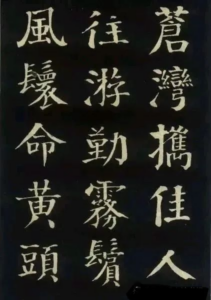 蒼灣攜佳人
往游勤霧鬢
風鬟命黃頭